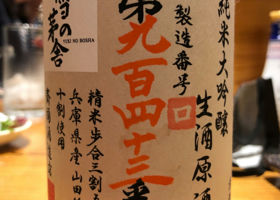 純米大吟醸
生酒原酒
製造番号
第九百四十三番
雪の茅舎
YUKI NO BOSHA
精米歩合三割五
兵庫県産山田
十割使用